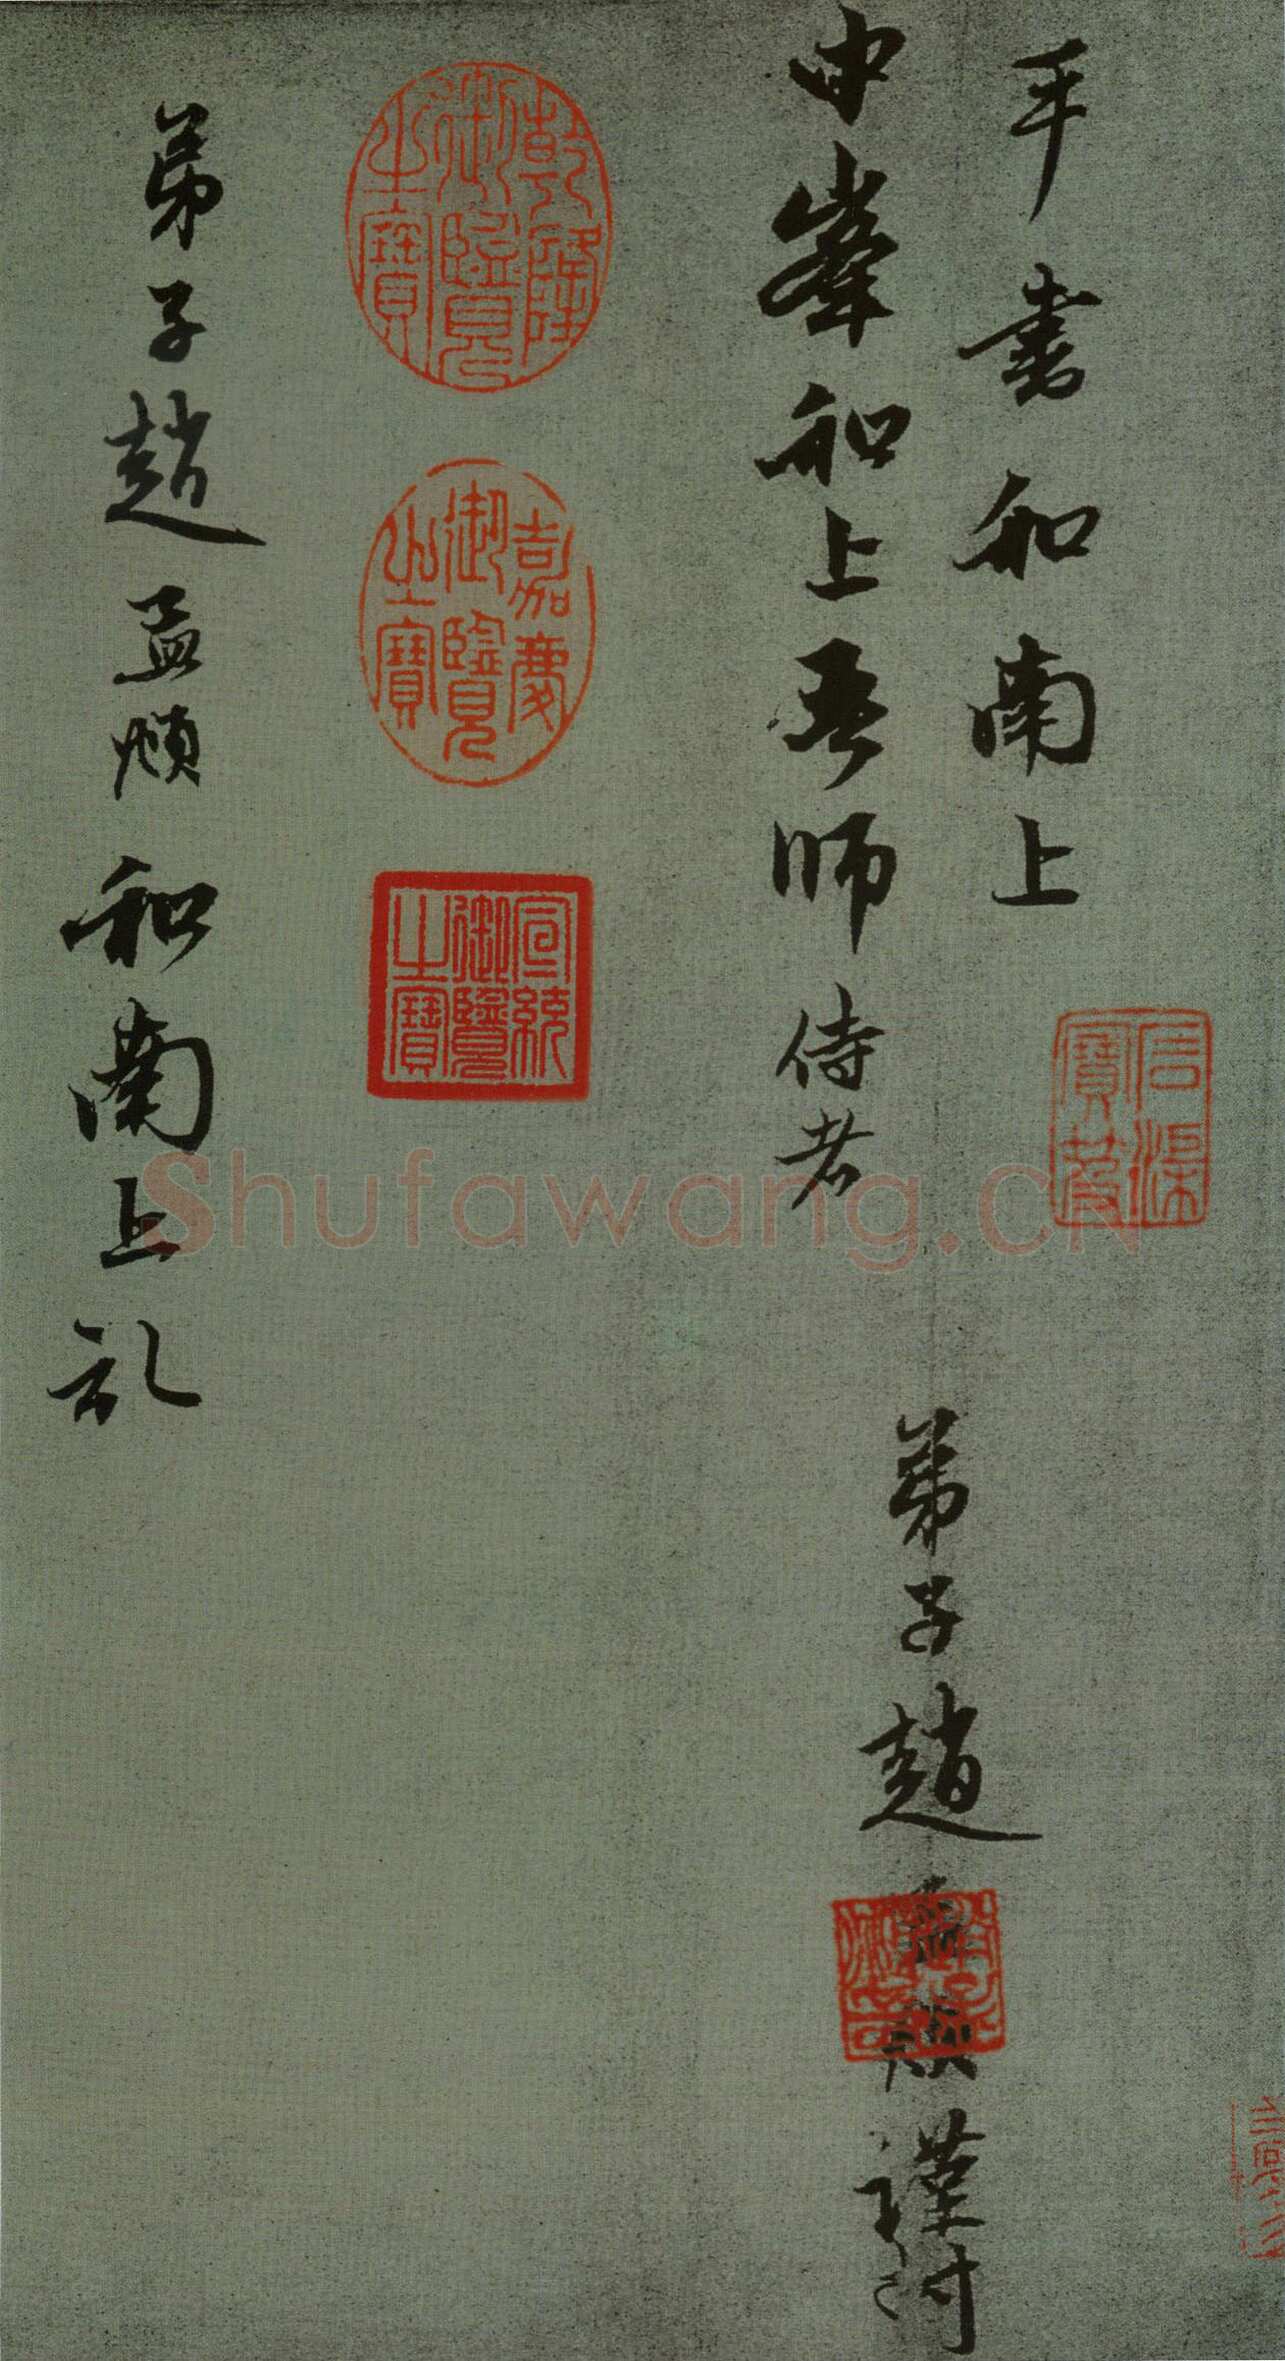 手書和南上
中峯和上吾師侍者
弟子趙孟頫謹封
乾隆御覽之寶
嘉慶御覽之寶
宣統御覽之寶
弟子趙孟頫和南上記
Shufawang.cn